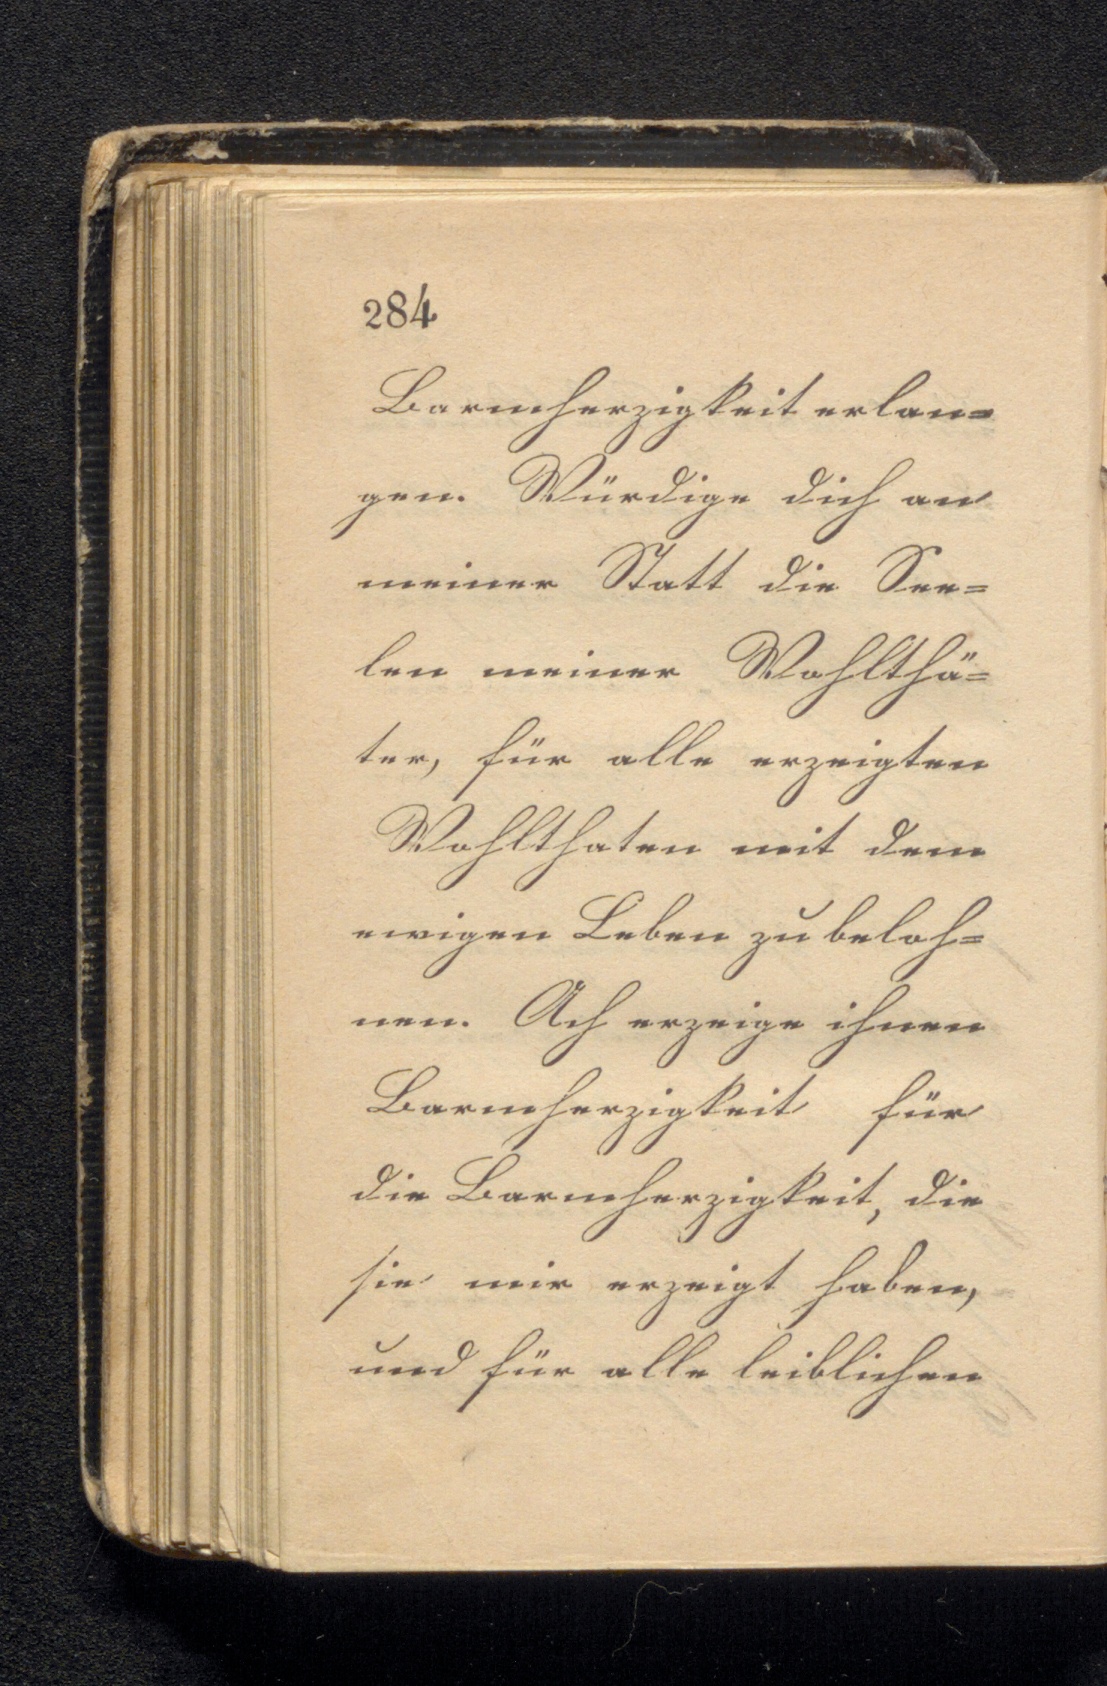 284
Barmherzigkeit erlan=
gen. Würdige dich an
meiner Statt die See=
len meiner Wohlthä=
ter, für alle erzeigten
Wohlthaten mit dem
ewigen Leben zu beloh=
nen. Ach erzeige ihnen
Barmherzigkeit für
die Barmherzigkeit, die
sie mir erzeigt haben,
und für alle leiblichen